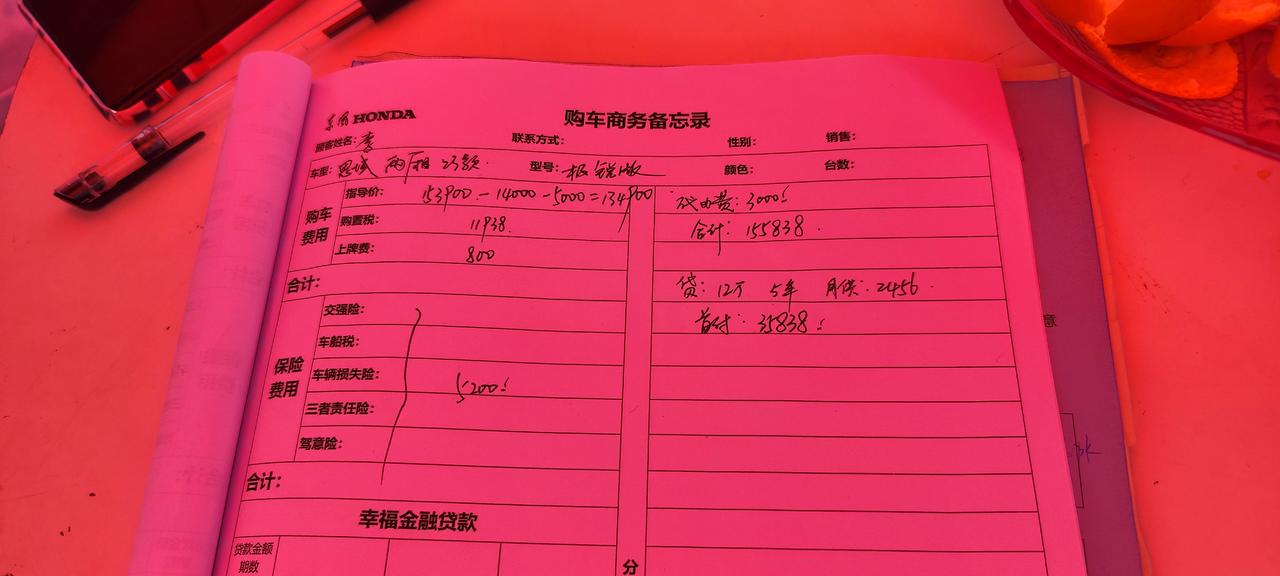 东风HONDA
购车商务备忘录
顾客姓名：李 联系方式： 性别： 销售：
车型：思域 两厢 23款. 型号：极锐版 颜色： 台数：
购车费用
指导价： 153900 - 14000 - 5000 = 134900
购置税： 11938.
上牌费： 800
合计：
保险费用
交强险：
车船税：
车辆损失险： 5200!
三者责任险：
驾意险：
合计：
幸福金融贷款
贷款金额
期数
费：3000!
合计：155838.
贷：12万 5年 月供：2456.
首付：35838!
分
意